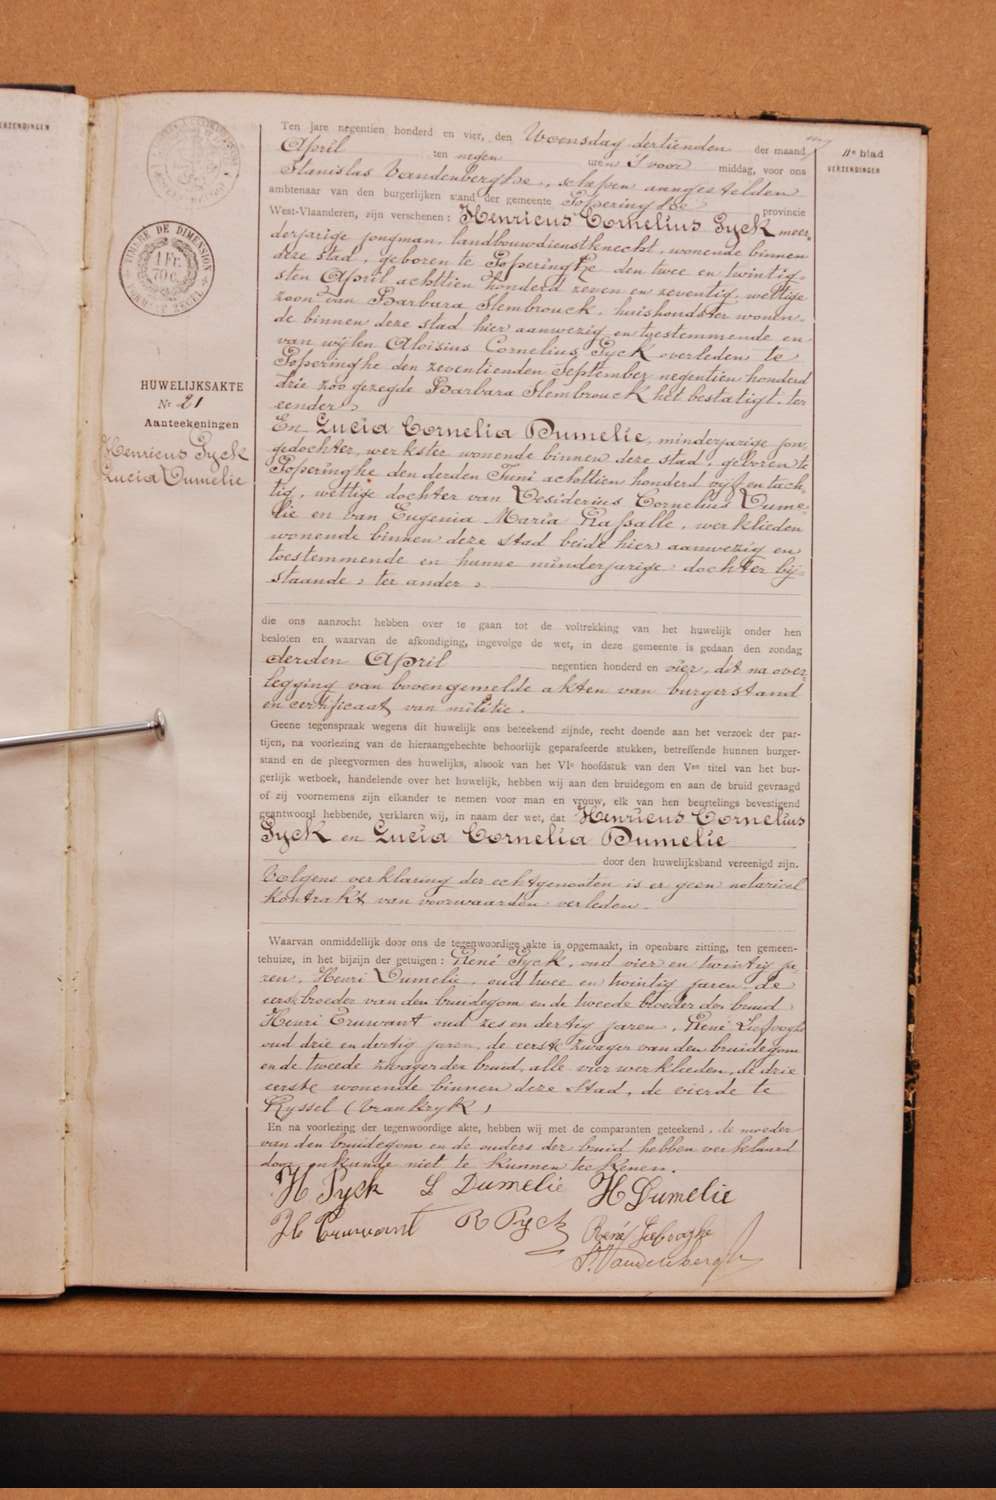 ERZENDINGEN
11e blad
VERZENDINGEN
TIMBRE DE DIMENSION
1 Fr.
70 c.
FORMAAT ZEGEL
HUWELIJKSAKTE
No 21
Aanteekeningen
Henricus Pyck
Lucia Dumelie
Ten jare negentien honderd en vier, den Woensdag dertienden der maand
April ten negen uren 's voor middag, voor ons
Stanislas Vandenberghe, schepen aangestelden
ambtenaar van den burgerlijken stand der gemeente Poperinghe provincie
West-Vlaanderen, zijn verschenen: Henricus Cornelius Pyck meer-
derjarige jongman, landbouwdienstknecht, wonende binnen
deze stad, geboren te Poperinghe den twee en twintig-
sten April achttien honderd zeven en zeventig, wettige
zoon van Barbara Slembrouck, huishoudster wonen-
de binnen deze stad hier aanwezig en toestemmende en
van wijlen Aloisius Cornelius Pyck overleden te
Poperinghe den zeventienden September negentien honderd
drie zoo gezegde Barbara Slembrouck het bestatigt, ter
eender,
En Lucia Cornelia Dumelie, minderjarige jon-
gedochter, werkster wonende binnen deze stad, geboren te
Poperinghe den derden Juni achttien honderd vyf en tach-
tig, wettige dochter van Desiderius Cornelius Dume-
lie en van Eugenia Maria Lassalle, werklieden
wonende binnen deze stad beide hier aanwezig en
toestemmende en hunne minderjarige dochter bij-
staande, ter ander,
die ons aanzocht hebben over te gaan tot de voltrekking van het huwelijk onder hen
besloten en waarvan de afkondiging, ingevolge de wet, in deze gemeente is gedaan den zondag
derden April negentien honderd en vier, dit na over-
legging van bovengemelde akten van burgerstand
en certificaat van militie.
Geene tegenspraak wegens dit huwelijk ons beteekend zijnde, recht doende aan het verzoek der par-
tijen, na voorlezing van de hieraangehechte behoorlijk geparafeerde stukken, betreffende hunnen burger-
stand en de pleegvormen des huwelijks, alsook van het VIe hoofdstuk van den Ven titel van het bur-
gerlijk wetboek, handelende over het huwelijk, hebben wij aan den bruidegom en aan de bruid gevraagd
of zij voornemens zijn elkander te nemen voor man en vrouw, elk van hen beurtelings bevestigend
geantwoord hebbende, verklaren wij, in naam der wet, dat Henricus Cornelius
Pyck en Lucia Cornelia Dumelie
door den huwelijksband vereenigd zijn.
Volgens verklaring der echtgenooten is er geen notarieel
kontrakt van voorwaarden verleden.
Waarvan onmiddellijk door ons de tegenwoordige akte is opgemaakt, in openbare zitting, ten gemeen-
tehuize, in het bijzijn der getuigen: René Pyck, oud vier en twintig ja
ren, Henri Dumelie, oud twee en twintig jaren, de
eerste broeder van den bruidegom en de tweede broeder der bruid
Henri Cruwant oud zes en dertig jaren, René Liefooghe
oud drie en dertig jaren, de eerste zwager van den bruidegom
en de tweede zwager der bruid, alle vier werklieden, de drie
eerste wonende binnen deze stad, de vierde te
Ryssel (Vrankryk)
En na voorlezing der tegenwoordige akte, hebben wij met de comparanten geteekend, de moeder
van den bruidegom en de ouders der bruid hebben verklaard
door onkunde niet te kunnen teekenen.
H Pyck L Dumelie H Dumelie
H Cruwant R Pyck René Liefooghe
S. Vandenberghe